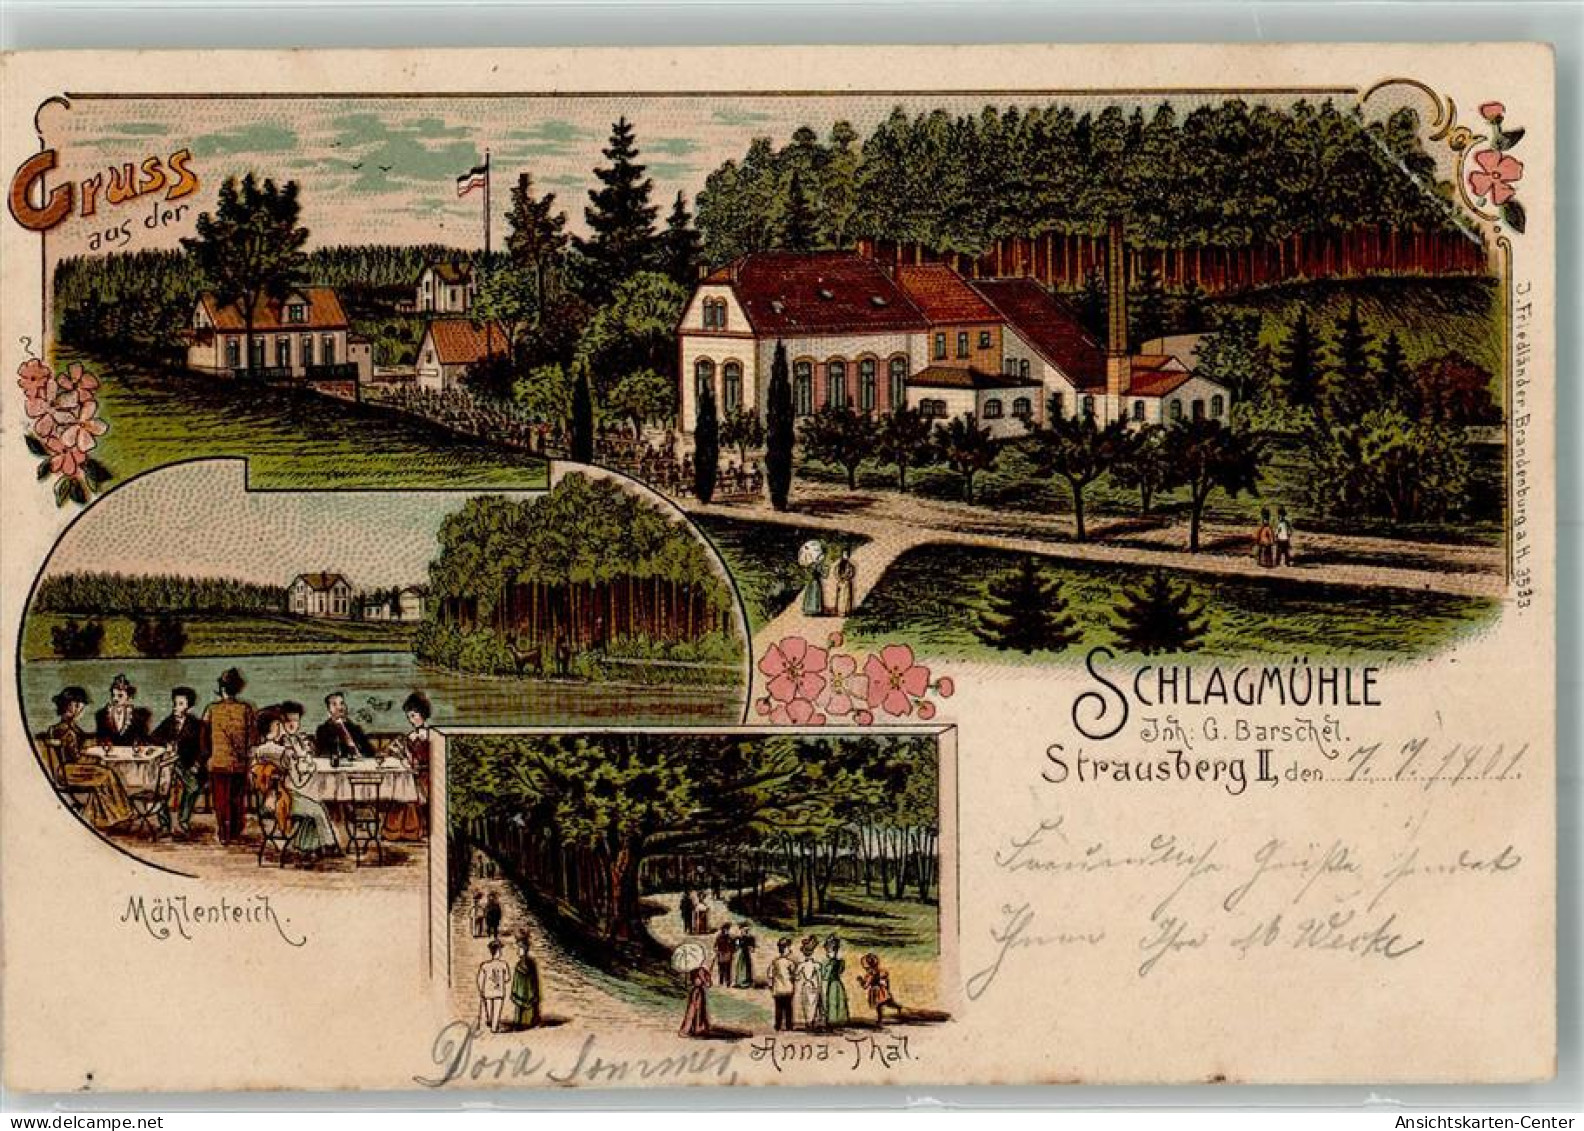 Gruss
aus der
J. Friedländer, Brandenburg a. H. 3533.
SCHLAGMÜHLE
Inh: G. Barschel.
Strausberg II, den 7. 7. 1901.
Freundliche Grüße sendet
Ihnen Ihre
Mühlenteich.
Anna-Thal.
Dora Sommer,
delcampe.net
Ansichtskarten-Center